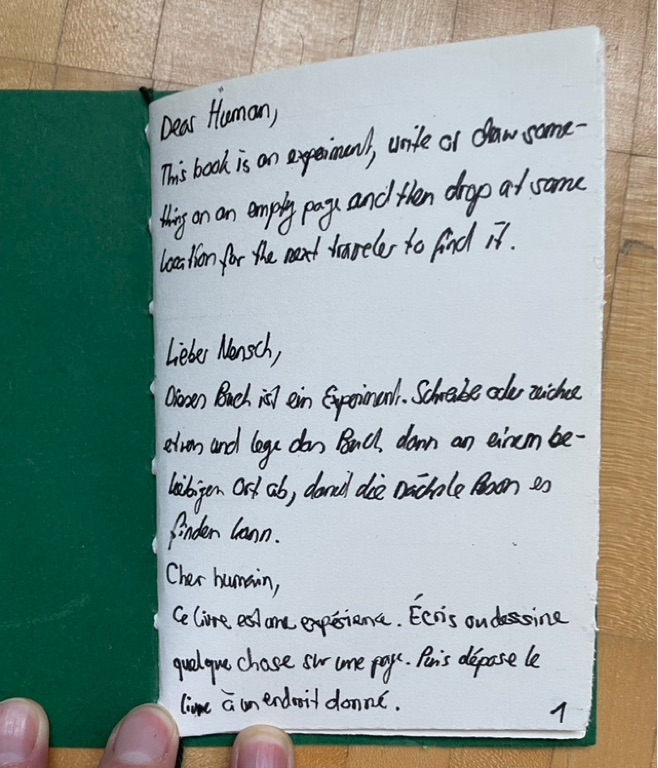 Dear Human,
This book is an experiment, write or draw some-
thing on an empty page and then drop at some
location for the next traveler to find it.
Lieber Mensch,
Dieses Buch ist ein Experiment. Schreibe oder zeichne
etwas und lege das Buch dann an einem be-
liebigen Ort ab, damit die nächste Person es
finden kann.
Cher humain,
Ce livre est une expérience. Écris ou dessine
quelque chose sur une page. Puis dépose le
livre à un endroit donné.
1